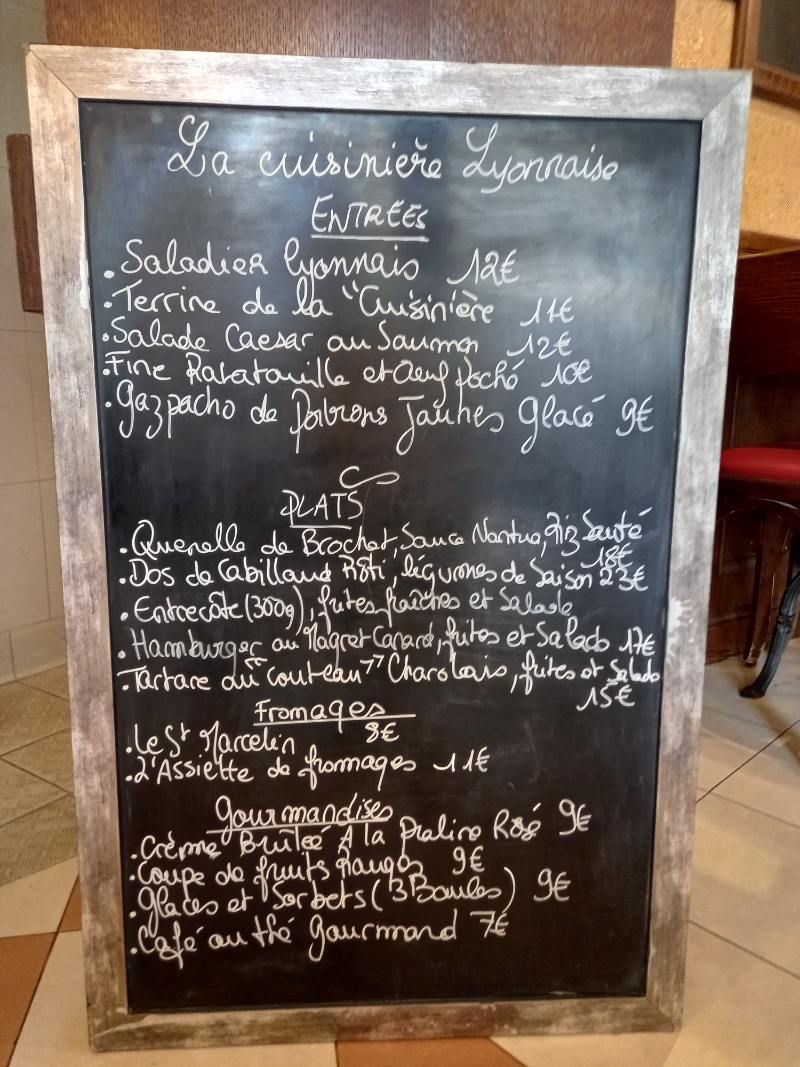 La cuisinière Lyonnaise
ENTREES
. Saladier lyonnais 12€
. Terrine de la "Cuisinière 11€
. Salade Caesar au Saumon 12€
. Fine Ratatouille et Oeuf poché 10€
. Gazpacho de Poivrons Jaunes Glacé 9€
PLATS
. Quenelle de Brochet, Sauce Nantua, Riz Sauté
18€
. Dos de Cabillaud Rôti, légumes de Saison 23€
. Entrecôte (300g), frites fraîches et Salade
. Hamburger au Magret Canard, frites et Salade 17€
. Tartare au "couteau" Charolais, frites et Salade
15€
Fromages
. Le St Marcelin 8€
. L'Assiette de fromages 11€
Gourmandises
. Crème Brûleé A la praline Rosé 9€
. Coupe de fruits Rouges 9€
. Glaces et Sorbets (3 Boules) 9€
. Café ou thé Gourmand 7€